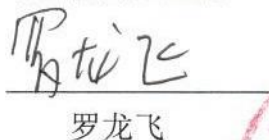 罗龙飞
罗龙飞